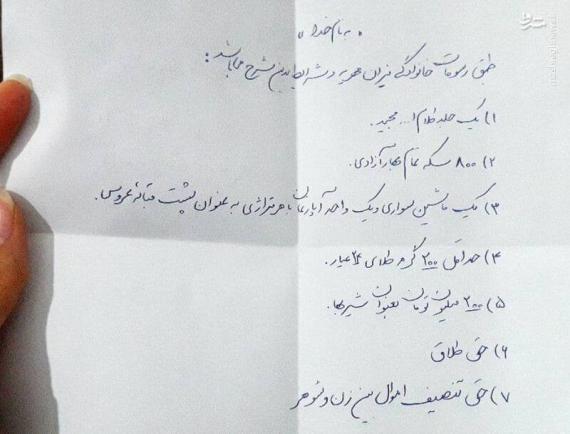 «به نام خدا»
طبق رسومات خانوادگی میزان مهریه و شرایط بدین شرح می‌باشد:
۱) یک جلد کلام ا... مجید.
۲) ۸۰۰ سکه تمام بهار آزادی.
۳) یک ماشین سواری و یک واحد آپارتمان با هر متراژی به عنوان پشت قباله عروس.
۴) حداقل ۲۰۰ گرم طلای ۲۴ عیار.
۵) ۲۰۰ میلیون تومان بعنوان شیربها.
۶) حق طلاق
۷) حق تنصیف اموال بین زن و شوهر
مشرق